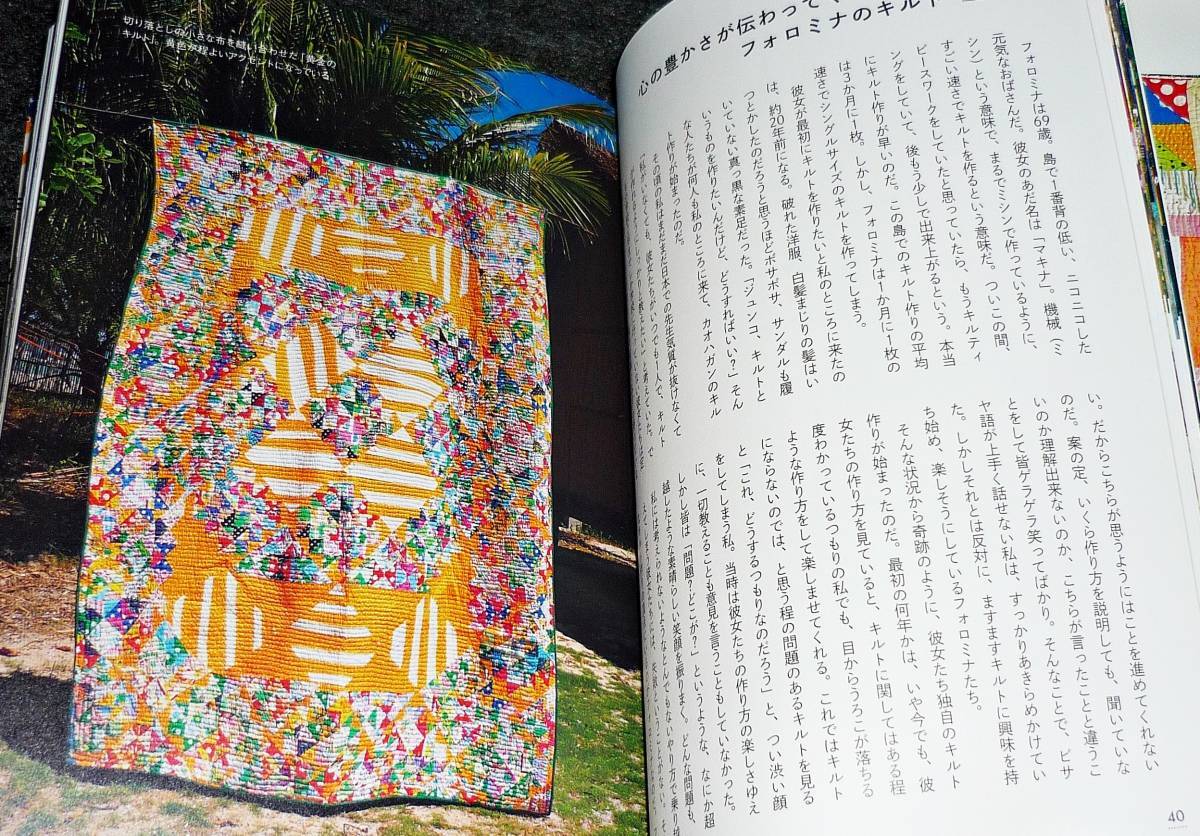 切り落としの小さな布を縫い合わせた「黄金の
キルト」。黄色が程よいアクセントになっている。
心の豊かさが伝わって、
フォロミナのキルト
フォロミナは69歳。島で1番背の低い、ニコニコした
元気なおばさんだ。彼女のあだ名は「マキナ」。機械(ミ
シン)という意味で、まるでミシンで作っているように、
すごい速さでキルトを作るという意味だ。ついこの間、
ピースワークをしていたと思っていたら、もうキルティ
ングをしていて、後もう少しで出来上がるという。本当
にキルト作りが早いのだ。この島でのキルト作りの平均
は3か月に1枚。しかし、フォロミナは1か月に1枚の
速さでシングルサイズのキルトを作ってしまう。
彼女が最初にキルトを作りたいと私のところに来たの
は、約20年前になる。破れた洋服、白髪まじりの髪はい
つとかしたのだろうと思うほどボサボサ、サンダルも履
いていない真っ黒な素足だった。「ジュンコ、キルトと
いうものを作りたいんだけど、どうすればいい?」そん
な人たちが何人も私のところに来て、カオハガンのキル
ト作りが始まったのだ。
その頃の私はまだまだ日本での先生気質が抜けなくて
「私がいなくても、彼女たちがいつでも1人で、キルト
い。だからこちらが思うようにはことを進めてくれない
のだ。案の定、いくら作り方を説明しても、聞いていな
いのか理解出来ないのか、こちらが言ったことと違うこ
とをして皆ゲラゲラ笑ってばかり。そんなことで、ビサ
ヤ語が上手く話せない私は、すっかりあきらめかけてい
た。しかしそれとは反対に、ますますキルトに興味を持
ち始め、楽しそうにしているフォロミナたち。
そんな状況から奇跡のように、彼女たち独自のキルト
作りが始まったのだ。最初の何年かは、いや今でも、彼
女たちの作り方を見ていると、キルトに関してはある程
度わかっているつもりの私でも、目からうろこが落ちる
ような作り方をして楽しませてくれる。これではキルト
にならないのでは、と思う程の問題のあるキルトを見る
と「これ、どうするつもりなのだろう」と、つい渋い顔
をしてしまう私。当時は彼女たちの作り方の楽しさゆえ
に、一切教えることも意見を言うこともしていなかった。
しかし皆は「問題?どこが?」というような、なにか超
越したような素晴らしい笑顔を振りまく。どんな問題も、
私には考えられないようなとんでもないやり方で乗り越
40